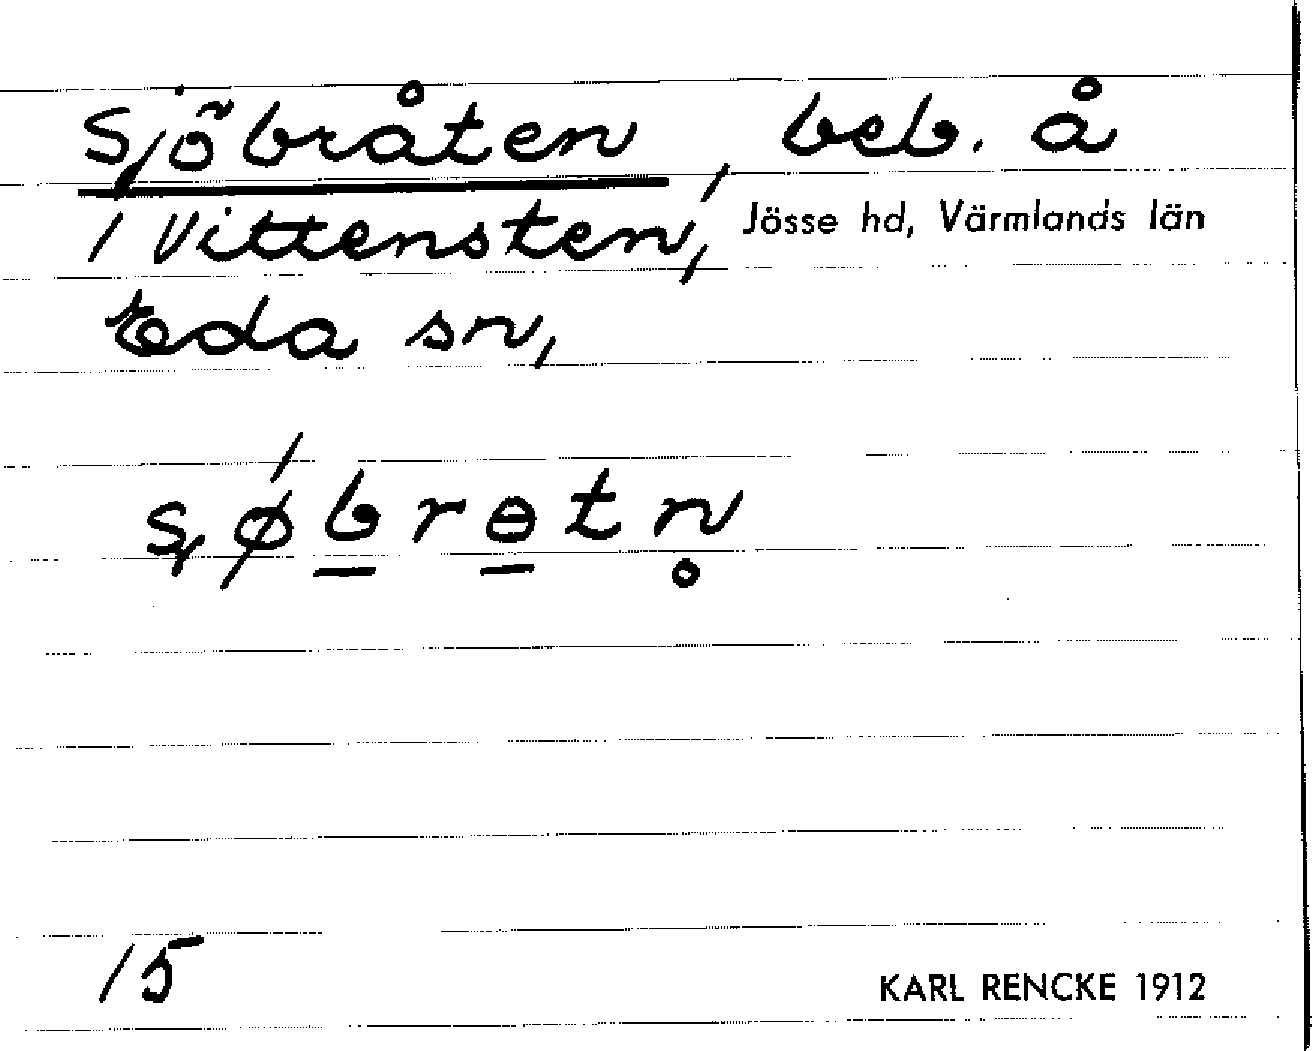 Sjöbråten, beb. å
1 Vittensten, Jösse hd, Värmlands län
Eda sn,
s,ǿb̲rɵ̲tn̥
15
KARL RENCKE 1912